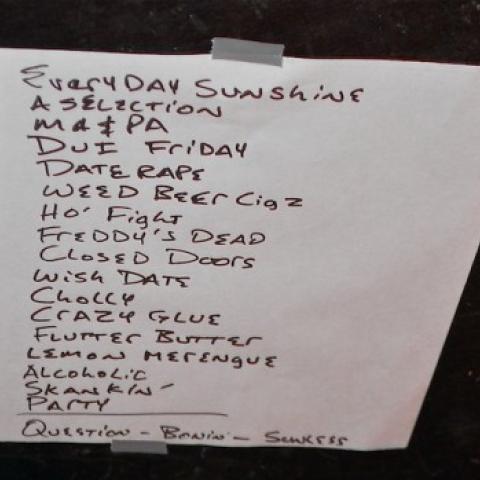 EVERYDAY SUNSHINE
A SELECTION
MA & PA
DUI FRIDAY
DATE RAPE
WEED BEER CIGZ
HO' FIGHT
FREDDY'S DEAD
CLOSED DOORS
WISH DATE
CHOLLY
CRAZY GLUE
FLUTTER BUTTER
LEMON MERENGUE
ALCOHOLIC
SKANKIN'
PARTY
QUESTION - BONIN' -